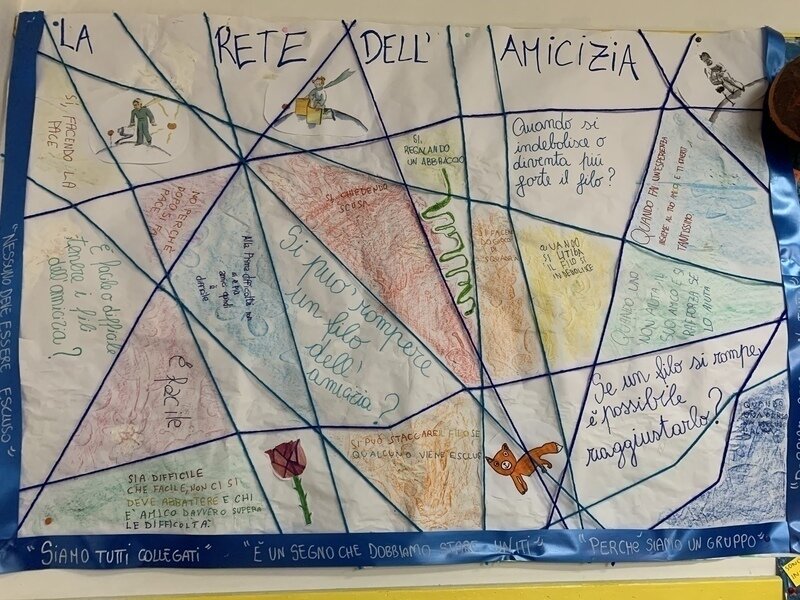 LA RETE DELL' AMICIZIA
SI, FACENDO LA
PACE
NO PERCHÈ
DOPO SI FA
PACE
È facile o difficile
tenere i fili
dell'amicizia?
Alla Prima difficoltà
difficile
È facile
SIA DIFFICILE
CHE FACILE, NON CI SI
DEVE ABBATTERE E CHI
E' AMICO DAVVERO SUPERA
LE DIFFICOLTÀ.
SI CHIEDENDO
SCUSA
Si può rompere
un filo
dell'
amicizia?
SI,
REGALANDO
UN ABBRACCIO
SI PUÒ STACCARE IL FILO SE
QUALCUNO VIENE ESCLUSO
Quando si
indebolisce o
diventa più
forte il filo?
QUANDO
SI LITIGA
IL FILO SI
INDEBOLISCE
QUANDO FAI UN'ESPERIENZA
INSIEME AL TUO AMICO E TI DIVERTI
TANTISSIMO
QUANDO UNO
NON AIUTA IL
SUO AMICO E SI
RAFFORZA SE
LO AIUTA
Se un filo si rompe,
è possibile
riaggiustarlo?
QUANDO
"NESSUNO DEVE ESSERE ESCLUSO"
"SIAMO TUTTI COLLEGATI"
"È UN SEGNO CHE DOBBIAMO STARE UNITI"
"PERCHÈ SIAMO UN GRUPPO"